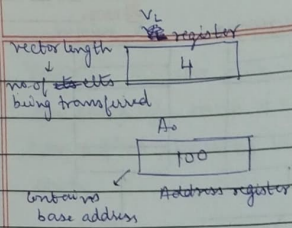 VL
register
vector length
4
no of elts
being transferred
A0
100
Contains
base address
Address register